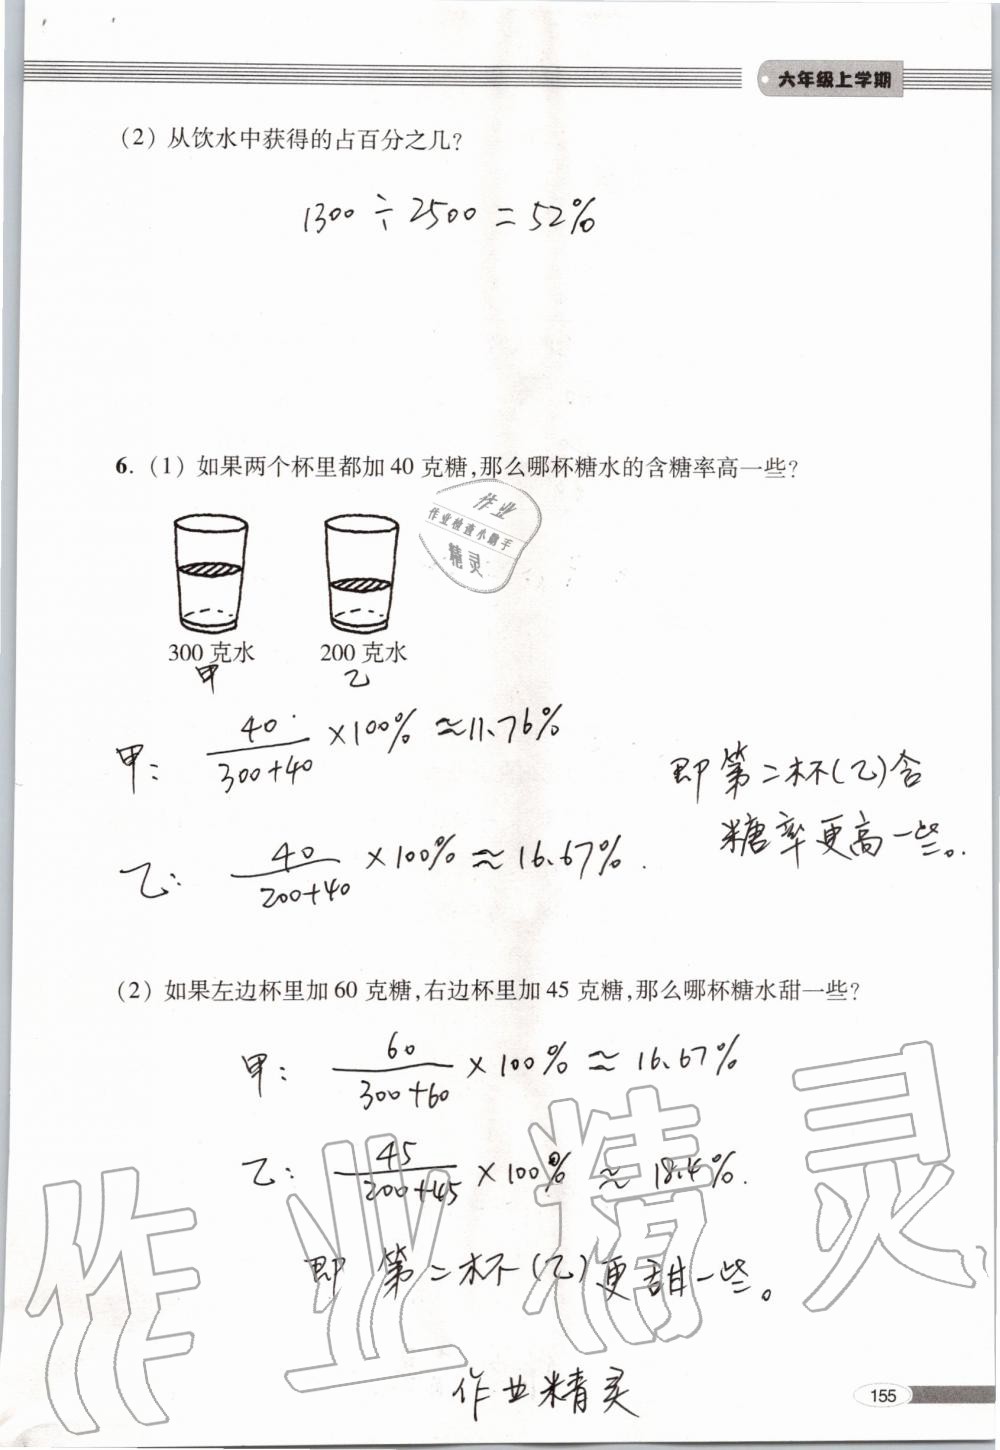 六年级上学期
(2) 从饮水中获得的占百分之几?
1300 ÷ 2500 = 52%
6. (1) 如果两个杯里都加 40 克糖,那么哪杯糖水的含糖率高一些?
作业
作业检查小助手
精灵
300 克水 200 克水
甲 乙
甲: 40/(300+40) ×100% ≈11.76%
即第二杯(乙)含
糖率更高一些。
乙: 40/(200+40) ×100% ≈16.67%.
(2) 如果左边杯里加 60 克糖,右边杯里加 45 克糖,那么哪杯糖水甜一些?
甲: 60/(300+60) ×100% ≈ 16.67%
乙: 45/(200+45) ×100% ≈ 18.4%.
即第二杯(乙)更甜一些。
作业精灵
作业精灵
155